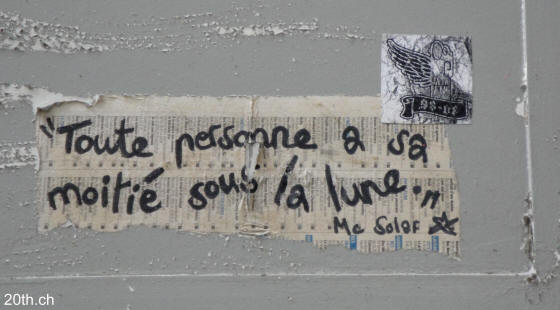 "Toute personne a sa
moitié sous la lune."
Mc Solar
20th.ch